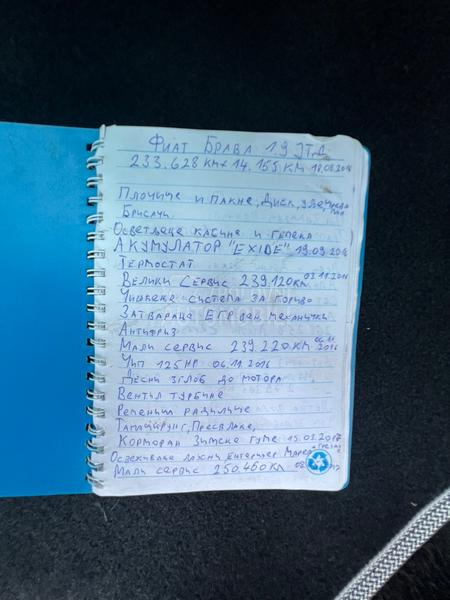 Фиат Брава 1.9 ЈТД
233.628 км + 14.155 км 18.08.2016
Плочице и пакне, диск,
Брисачи.
Осветљење кабине и гепека
Акумулатор "EXIDE" 19.09.2016
Термостат
Велики сервис 239.120км 02.11.2016
Чишћење система за гориво
Затварање ЕГР вен. механички
Антифриз
Мали сервис 239.220км 06.11.2016
Чип 125HP 06.11.2016
Десни зглоб до мотора
Вентил турбине
Ремени радилице
Пресвлаке,
Корморан зимске гуме 15.01.2017
лажни ентеријер
Мали сервис 250.460км